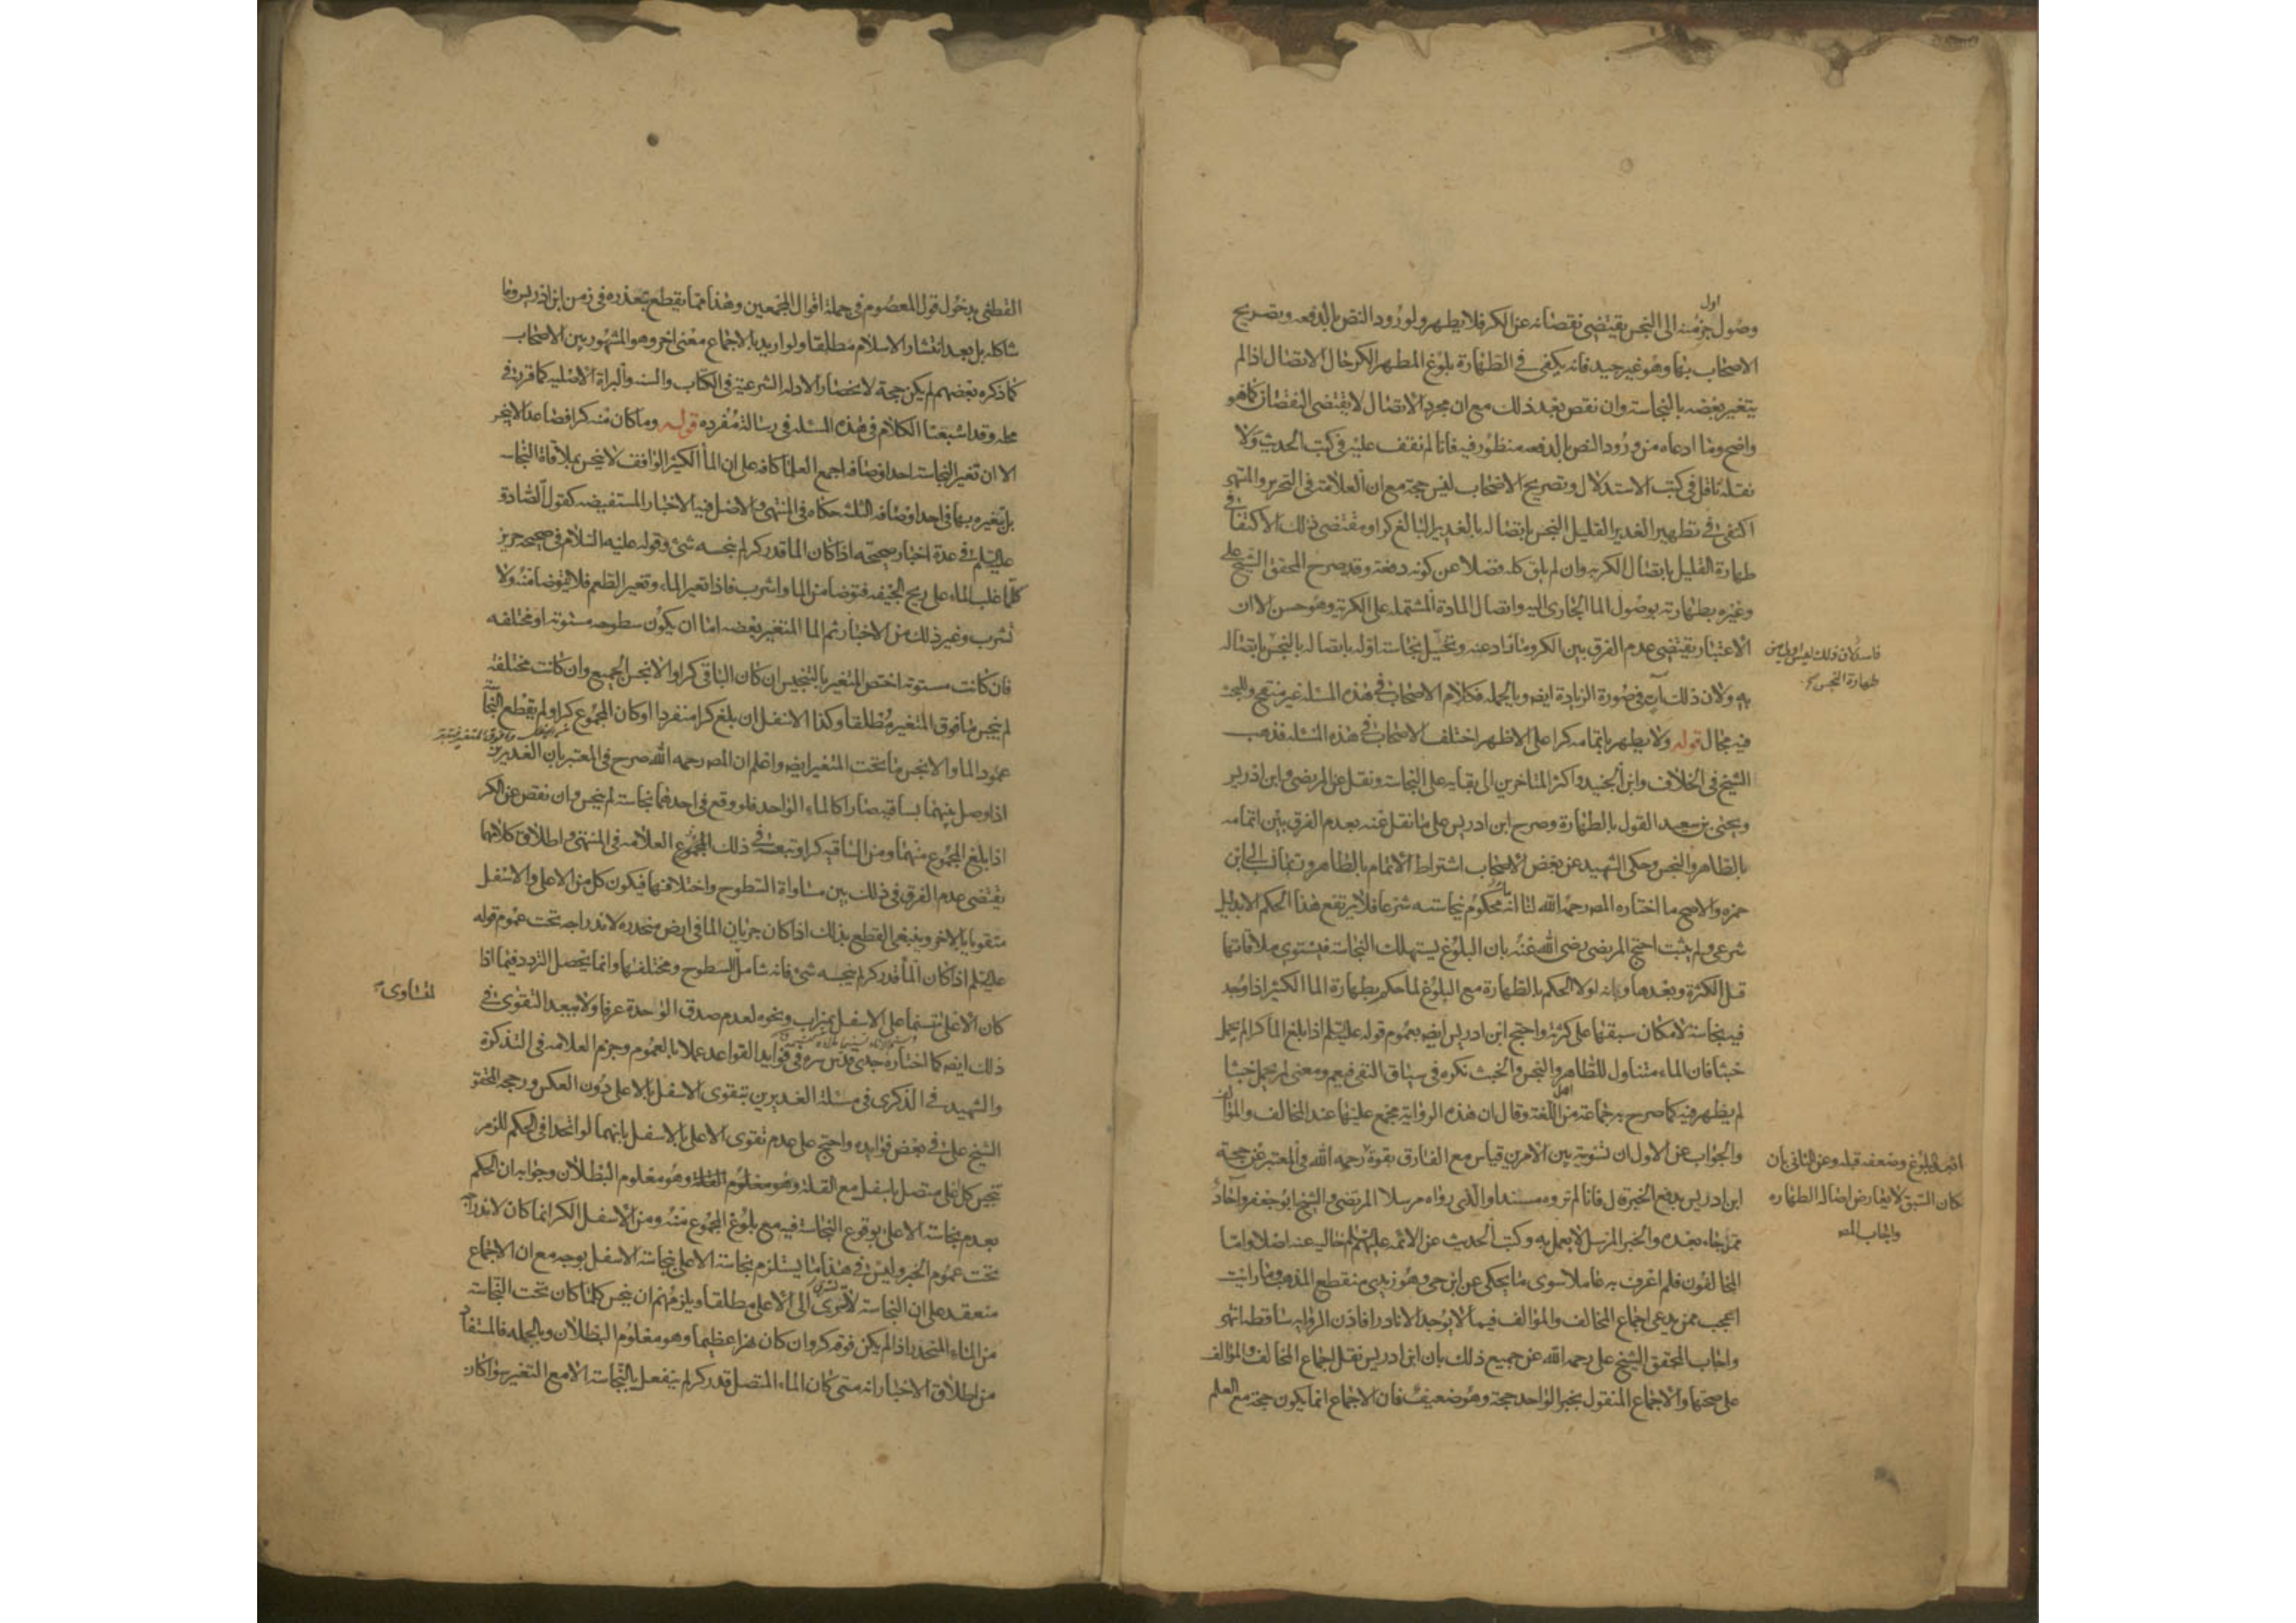 اول
وصول جزء منه الى النجس يقتضى نقصانه عن الكر فلا يطهر ولورود النص بالدفعه وتصريح
الاصحاب بها وهو غير جيد فانه يكفى فى الطهارة بلوغ المطهر الكر حال الاتصال اذا لم
يتغير بعضه بالنجاسة وان نقص بعد ذلك مع ان مجرد الاتصال لا يقتضى النقصان كما هو
واضح وما ادعاه من ورود النص بالدفعه منظور فيه فانا لم نقف عليه فى كتب الحديث ولا
نقله ناقل فى كتب الاستدلال وتصريح الاصحاب ليس حجة مع ان العلامة فى التحرير والمنتهى
اكتفى فى تطهير الغدير القليل النجس باتصاله بالغدير البالغ كرا ومقتضى ذلك الاكتفا فى
طهارة القليل باتصال الكر به وان لم يلق كله فضلا عن كونه دفعة وقد صرح المحقق الشيخ على
وغيره بطهارته بوصول الما الجارى اليه واتصال المادة المشتمله على الكر به وهو حسن لان
الاعتبار يقتضى عدم الفرق بين الكر وما زاد عنه وتخيل نجاسة اوله باتصاله بالنجس باتصاله
فاسد لان ذلك ليس اولى من
طهارة النجس
به ولان ذلك آت فى صورة الزيادة ايضه وبالجمله فكلام الاصحاب فى هذه المسئله غير منقح وللبحث
فيه مجال قوله ولا يطهر باتمامه كرا على الاظهر اختلف الاصحاب فى هذه المسئله فذهب
الشيخ فى الخلاف وابن الجنيد واكثر المتاخرين الى بقايه على النجاسة ونقل عن المرتضى وابن ادريس
ويحيى بن سعيد القول بالطهارة وصرح ابن ادريس على ما نقل عنه بعدم الفرق بين اتمامه
بالطاهر والنجس وحكى الشهيد عن بعض الاصحاب اشتراط الاتمام بالطاهر ابن
حمزه والاصح ما اختاره المصه رحمه الله لنا انه ماء محكوم بنجاسته شرعا فلا يرتفع هذا الحكم الا بدليل
شرعى ولم يثبت احتج المرتضى رضى الله عنه بان البلوغ يستهلك النجاسة فيستوى ملاقاتها
قبل الكثرة وبعدها وبانه لولا الحكم بالطهارة مع البلوغ لما حكم بطهارة الما الكثير اذا وجد
فيه نجاسة لامكان سبقها على كثرته واحتج ابن ادريس ايضه بعموم قوله عليه السلم اذا بلغ الما كرا لم يحمل
خبثا فان الماء متناول للطاهر والنجس والخبث نكره فى سياق النفى فيعم ومعنى لم يحمل خبثا
لم يظهر فيه كما صرح به جماعة من اهل اللغة وقال ان هذه الرواية مجمع عليها عند المخالف والمؤالف
والجواب عن الاول ان تسوية بين الامرين قياس مع الفارق بقوة رحمه الله فى المعتبر عن حجة
الماء البلوغ وضعفه قبله وعن الثانى بان
ابن ادريس بدفع الخبر قال فانا لم نروه مسندا والذى رواه مرسلا المرتضى والشيخ ابو جعفر وآحاد
كان السبق لا يعارض اصالة الطهاره
واجاب المصه
ممن جاء بعده والخبر المرسل لا يعمل به وكتب الحديث عن الائمه عليهم السلم خاليه عنه اصلا واما
المخالفون فلم اعرف به عاملا سوى ما يحكى عن ابن حى وهو زيدى منقطع المذهب وما رايت
اعجب ممن يدعى اجماع المخالف والمؤالف فيما لا يوجد الا نادرا فاذن الرواية ساقطة انتهى
واجاب المحقق الشيخ على رحمه الله عن جميع ذلك بان ابن ادريس نقل اجماع المخالف والمؤالف
على صحتها والاجماع المنقول بخبر الواحد حجة وهو ضعيف فان الاجماع انما يكون حجة مع العلم
القطعى بدخول قول المعصوم فى جملة اقوال المجمعين وهذا مما يقطع بتعذره فى زمن ابن ادريس وما
شاكله بل بعد انتشار الاسلام مطلقا ولو اريد بالاجماع معنى اخر وهو المشهور بين الاصحاب
كما ذكره بعضهم لم يكن حجة لانحصار الادلة الشرعية فى الكتاب والسنه والبراة الاصليه كما قررته فى
محله وقد اشبعنا الكلام فى هذه المسئله فى رسالة مفرده قوله وما كان منه كرا فصاعدا لا ينجس
الا ان تغير النجاسة احد اوصافه اجمع العلما كافه على ان الما الكثير الواقف لا ينجس بملاقاة النجاسة
بل بتغيره بها فى احد اوصافه الثلثه حكاه فى المنتهى والاصل فيه الاخبار المستفيضه كقول الصادق
عليه السلم فى عدة اخبار صحيحه اذا كان الما قدر كر لم ينجسه شئ وقوله عليه السلام فى صحيحه حريز
كلما غلب الماء على ريح الجيفه فتوضا من الما واشرب فاذا تغير الماء وتغير الطعم فلا توضا منه ولا
تشرب وغير ذلك من الاخبار ثم الما المتغير بعضه اما ان يكون سطوحه مستوية او مختلفه
فان كانت مستوية اختص المتغير بالتنجيس ان كان الباقى كرا والا نجس الجميع وان كانت مختلفة
لم ينجس ما فوق المتغير مطلقا وكذا الاسفل ان بلغ كرا منفردا او كان المجموع كرا ولم يقطع النجاسة
عمود الما والا نجس ما تحت المتغير ايضه واعلم ان المصه رحمه الله صرح فى المعتبر بان الغديرين
اذا وصل بينهما بساقيه صارا كالماء الواحد فلو وقع فى احدهما نجاسة لم ينجس وان نقص عن الكر
اذا بلغ المجموع منهما ومن الساقيه كرا وتبعه فى ذلك العلامه فى المنتهى واطلاق كلامهما
يقتضى عدم الفرق فى ذلك بين مساواة السطوح واختلافها فيكون كل من الاعلى والاسفل
متقويا بالاخر وينبغى القطع بذلك اذا كان جريان الما فى ارض منحدره لاندراجه تحت عموم قوله
عليه السلم اذا كان الما قدر كر لم ينجسه شئ فانه شامل السطوح ومختلفها وانما يحصل التردد فيما اذا
لمتساوى
كان الاعلى متسنما على الاسفل بميزاب ونحوه لعدم صدق الوحدة عرفا ولا يبعد التقوى فى
ذلك ايضه كما اختاره جدى قدس سره فى فوايد القواعد عملا بالعموم وجزم العلامه فى التذكرة
والشهيد فى الذكرى فى مسئلة الغديرين بتقوى الاسفل بالاعلى دون العكس ورجحه المحقق
الشيخ على فى بعض فوايده واحتج على عدم تقوى الاعلى بالاسفل بانهما لو اتحدا فى الحكم للزم
تنجيس كل اعلى متصل باسفل مع القلة وهو معلوم البطلان وجوابه ان الحكم
بعدم نجاسة الاعلى بوقوع النجاسة فيه مع بلوغ المجموع منه ومن الاسفل الكر انما كان لاندراجه
تحت عموم الخبر وليس فى هذا ما يستلزم نجاسة الاعلى بنجاسة الاسفل بوجه مع ان الاجماع
منعقد على ان النجاسة لا تسرى الى الاعلى مطلقا ويلزمهم ان ينجس كلما كان تحت النجاسة
من الماء المنحدر اذا لم يكن فوقه كر وان كان نهرا عظيما وهو معلوم البطلان وبالجمله فالمستفاد
من اطلاق الاخبار انه متى كان الماء المتصل قدر كر لم ينفعل بالنجاسة الا مع التغير سوا كان